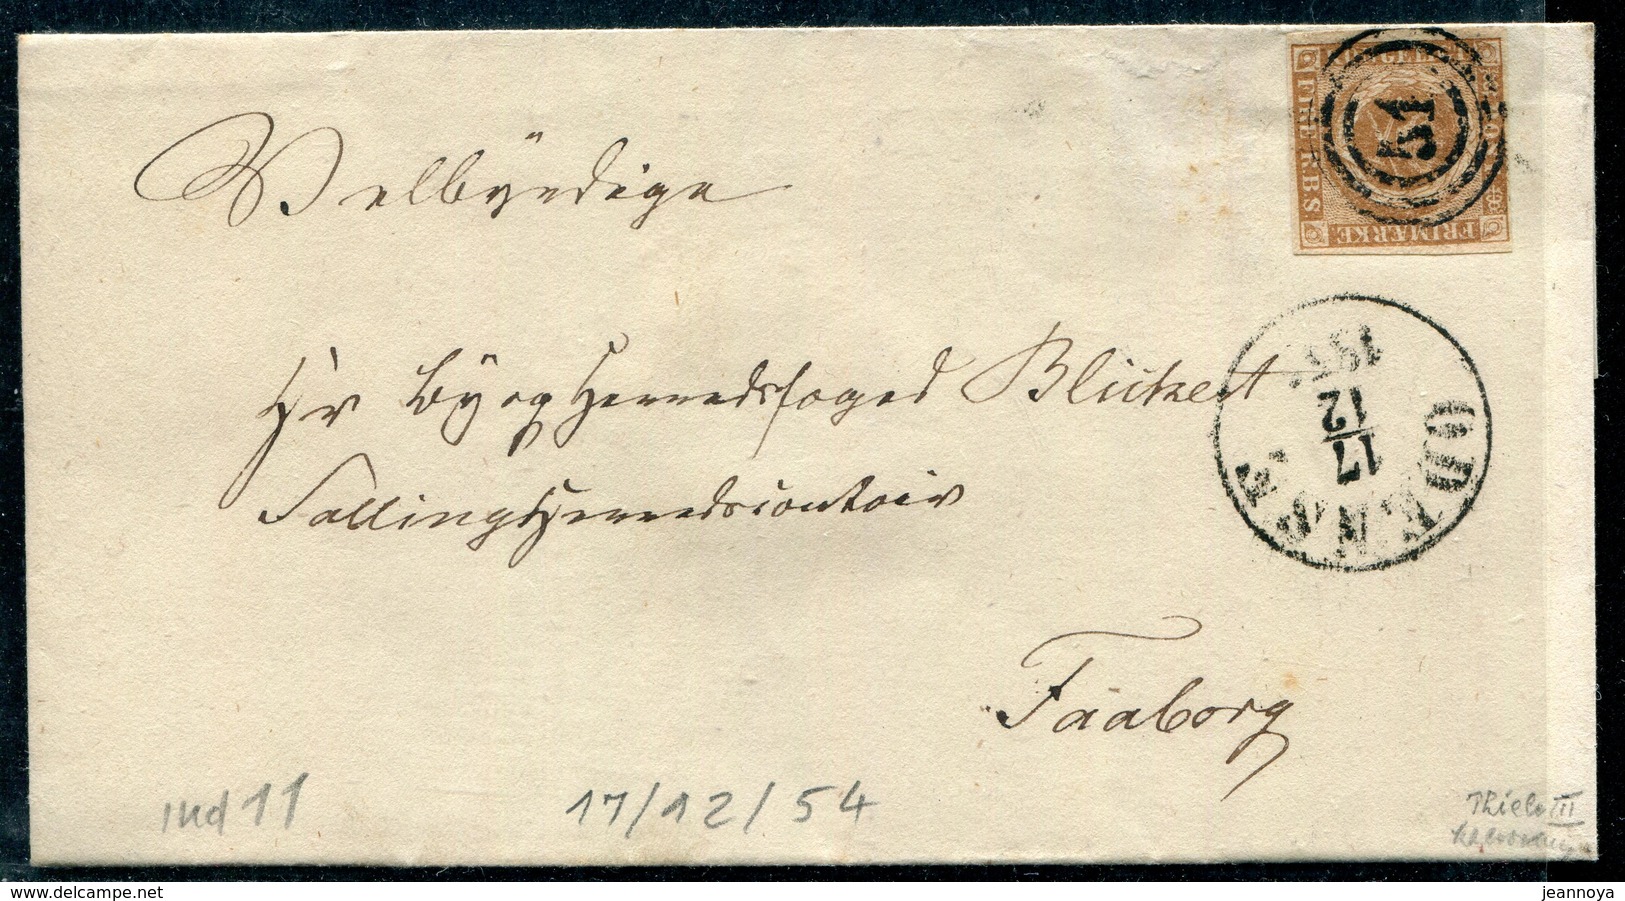 KGL POST
FRIMÆRKE
FIRE R.B.S
51
Welbyrdige
Hr By og Herredsfoged Blichert
SallingHerredscontoir
Faaborg
ODENSE
17
12
ind 11
17/12/54
Thiele III
www.delcampe.net
jeannoya